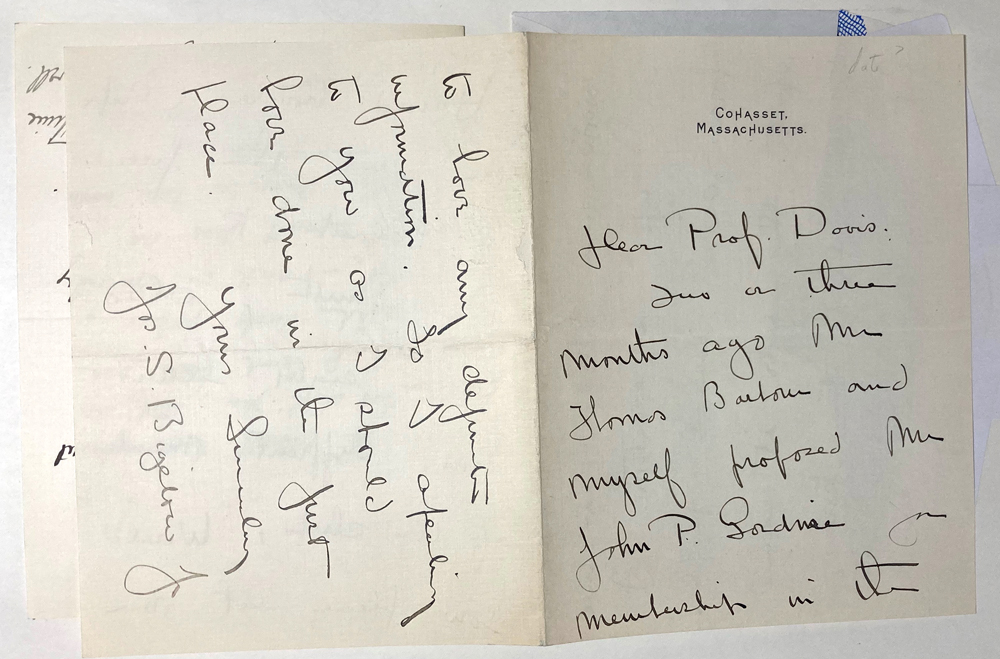 COHASSET,
MASSACHUSETTS.
Dear Prof. Davis.
Two or three
months ago Mr
Thomas Barbour and
myself proposed Mr
John P. Gardner for
membership in the
to have any definite
information. So I appealing
to you as I should
have done in the first
place.
Yours Sincerely
Jos. S. Bigelow Jr